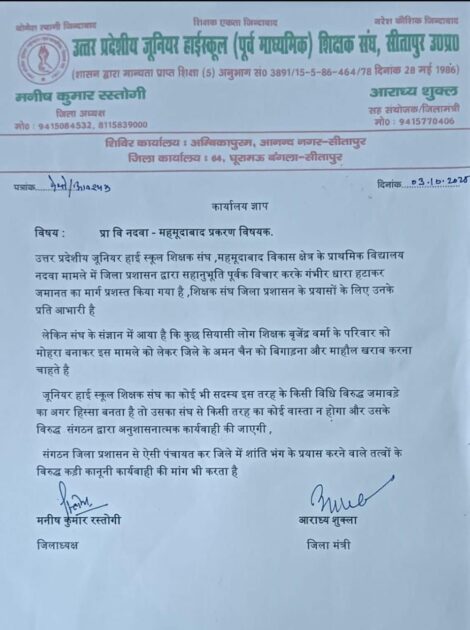 योगेश त्यागी जिन्दाबाद शिक्षक एकता जिन्दाबाद नरेश कौशिक जिन्दाबाद
उत्तर प्रदेशीय जूनियर हाईस्कूल (पूर्व माध्यमिक) शिक्षक संघ, सीतापुर उ०प्र०
(शासन द्वारा मान्यता प्राप्त शिक्षा (5) अनुभाग सं० 3891/15-5-86-464/78 दिनांक 28 मई 1986)
मनीष कुमार रस्तोगी आराध्य शुक्ल
जिला अध्यक्ष सह संयोजक/जिलामंत्री
मो० : 9415084532, 8115839000 मो० : 9415770406
शिविर कार्यालय : अम्बिकापुरम, आनन्द नगर-सीतापुर
जिला कार्यालय : 64, घूरामऊ बंगला-सीतापुर
पत्रांक दिनांक 03.10.2025
कार्यालय ज्ञाप
विषय : प्रा वि नदवा - महमूदाबाद प्रकरण विषयक.
उत्तर प्रदेशीय जूनियर हाई स्कूल शिक्षक संघ ,महमूदाबाद विकास क्षेत्र के प्राथमिक विद्यालय
नदवा मामले में जिला प्रशासन द्वारा सहानुभूति पूर्वक विचार करके गंभीर धारा हटाकर
जमानत का मार्ग प्रशस्त किया गया है ,शिक्षक संघ जिला प्रशासन के प्रयासों के लिए उनके
प्रति आभारी है
लेकिन संघ के संज्ञान में आया है कि कुछ सियासी लोग शिक्षक बृजेंद्र वर्मा के परिवार को
मोहरा बनाकर इस मामले को लेकर जिले के अमन चैन को बिगाड़ना और माहौल खराब करना
चाहते है
जूनियर हाई स्कूल शिक्षक संघ का कोई भी सदस्य इस तरह के किसी विधि विरुद्ध जमावड़े
का अगर हिस्सा बनता है तो उसका संघ से किसी तरह का कोई वास्ता न होगा और उसके
विरुद्ध संगठन द्वारा अनुशासनात्मक कार्यवाही की जाएगी ,
संगठन जिला प्रशासन से ऐसी पंचायत कर जिले में शांति भंग के प्रयास करने वाले तत्वों के
विरुद्ध कड़ी कानूनी कार्यवाही की मांग भी करता है
मनीष कुमार रस्तोगी आराध्य शुक्ला
जिलाध्यक्ष जिला मंत्री